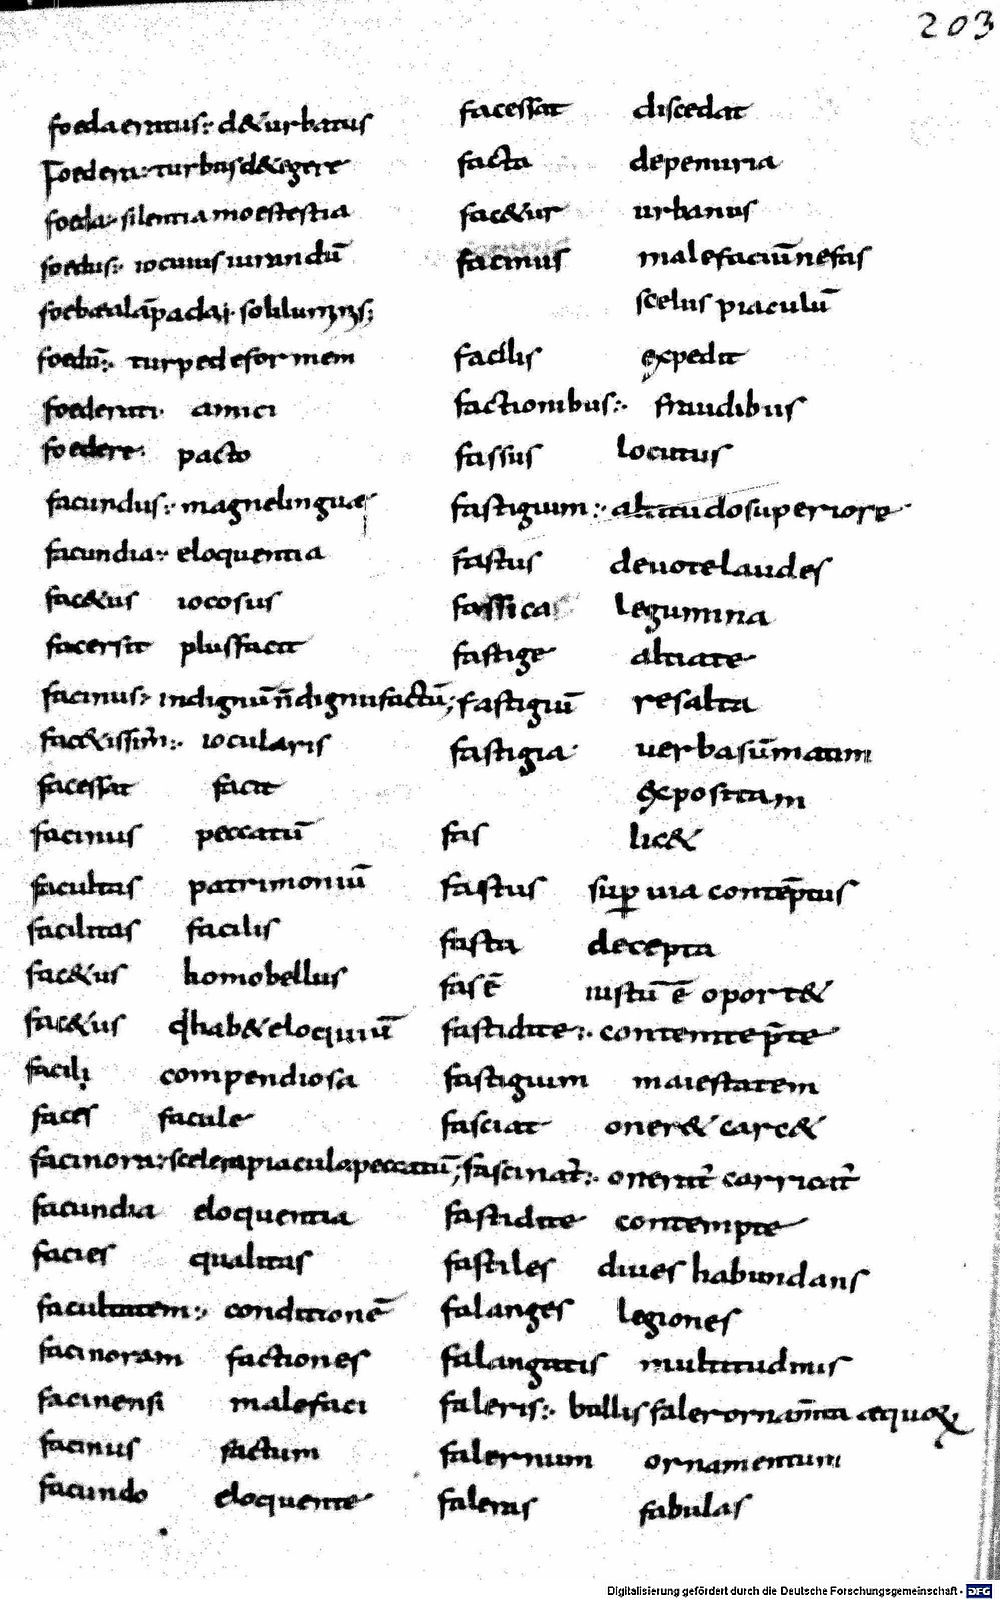 203
foedaeratus:· d&urbatus
Foedera:· turbasd&egere
foeda:· silentia moestestia
foedus:· iocuius iurandū
foebealāpadaj· solilum
foedū:· turpedeformem
foederati· amici
foedere· pacto
facundus:· magnelinguae
facundia:· eloquentia
fac&us iocosus
facersit plusfacit
facinus:· indignūn̄dignifactū;
fac&issim̄:· iocularis
facessat facit
facinus peccatū
facultas patrimoniū
facilitas facilis
fac&us homobellus
fac&us qđhab&eloquiū
facili compendiosa
faces facule
facinora:· scelerapiaculapeccatū;
facundia eloquentia
facies qualitas
facultatem:· conditionē
facinoram factiones
facinensi malefaci
facinus factum
facundo eloquente
facessat discedat
facta depenuria
fac&ur urbanus
facinus malefaciūnefas
scelus piaculū
facilis expedit
factionibus:· fraudibus
fassus locutus
fastigium:· altitudosuperiore
fastus deuotelaudes
fassica legumina
fastige altiate
fastigiū resalta
fastigia uerbasūmatim
expositam
fas lic&
fastus suꝑuia contēptus
fasta decepta
fasē iustū ē oport&
fastidite:· contemtep̄te
fastigium maiestatem
fasciat oner& carc&
fascinat̄:· onerat̄ carricat̄
fastidite contempte
fastiles diues habundans
falanges legiones
falangatis multitudinis
faleris:· bullis falerornam̄ta aequoꝝ
falernum ornamentum
faleras fabulas
Digitalisierung gefördert durch die Deutsche Forschungsgemeinschaft - DFG